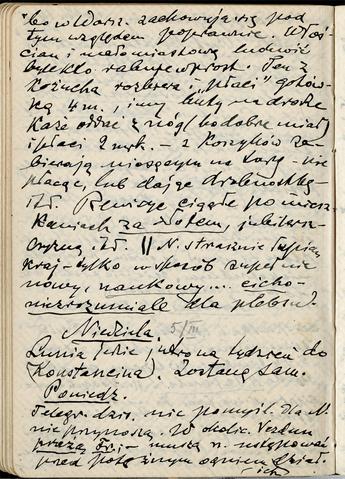 bo w Warsz. zachowują się pod
tym względem poprawnie. Włoś-
cian i małomiastową ludność
byle kto rabuje wprost. Ten z
kożucha rozbiera i „płaci” gotów-
ką 4 m., inny buty na drodze
każe oddać z nóg (bo dobre miał)
i płaci 2 mrk. – z koszyków za-
bierają niosącym na targ – nie
płacąc, lub dając drobnostkę
itd. Rewizye ciągłe po miesz-
kaniach za złotem,
itd. || N. strasznie łupią
kraj – tylko w sposób zupełnie
nowy, naukowy... cicho –
niezrozumiale dla plebsu.
Niedziela. 5/III
Lunia jedzie jutro na tydzień do
Konstancina. Zostanę sam.
Poniedz.
Telegr. dzis. nic pomyśl. dla N.
nie przynoszą. W okolic. Verdun
prażą Fr. – muszą n. ustępować
przed potężnym ogniem dział
ich